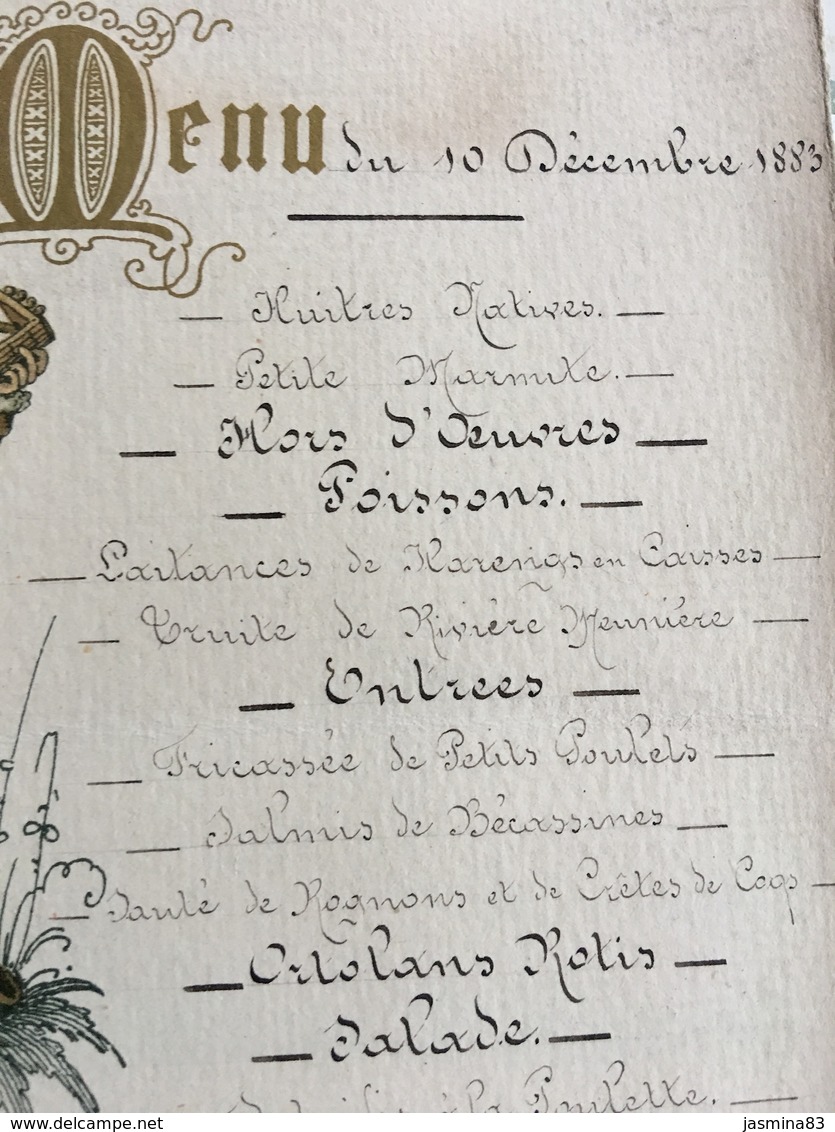 Menu du 10 Décembre 1883
— Huitres Natives. —
— Petite Marmite. —
— Hors d'Oeuvres —
— Poissons. —
— Laitances de Harengs en Caisses —
— Truite de Rivière Meunière —
— Entrees —
— Fricassée de Petits Poulets —
— Salmis de Bécassines —
— Sauté de Rognons et de Crêtes de Coqs —
— Ortolans Rotis —
— Salade. —
à la Poulette. —
www.delcampe.net
jasmina83